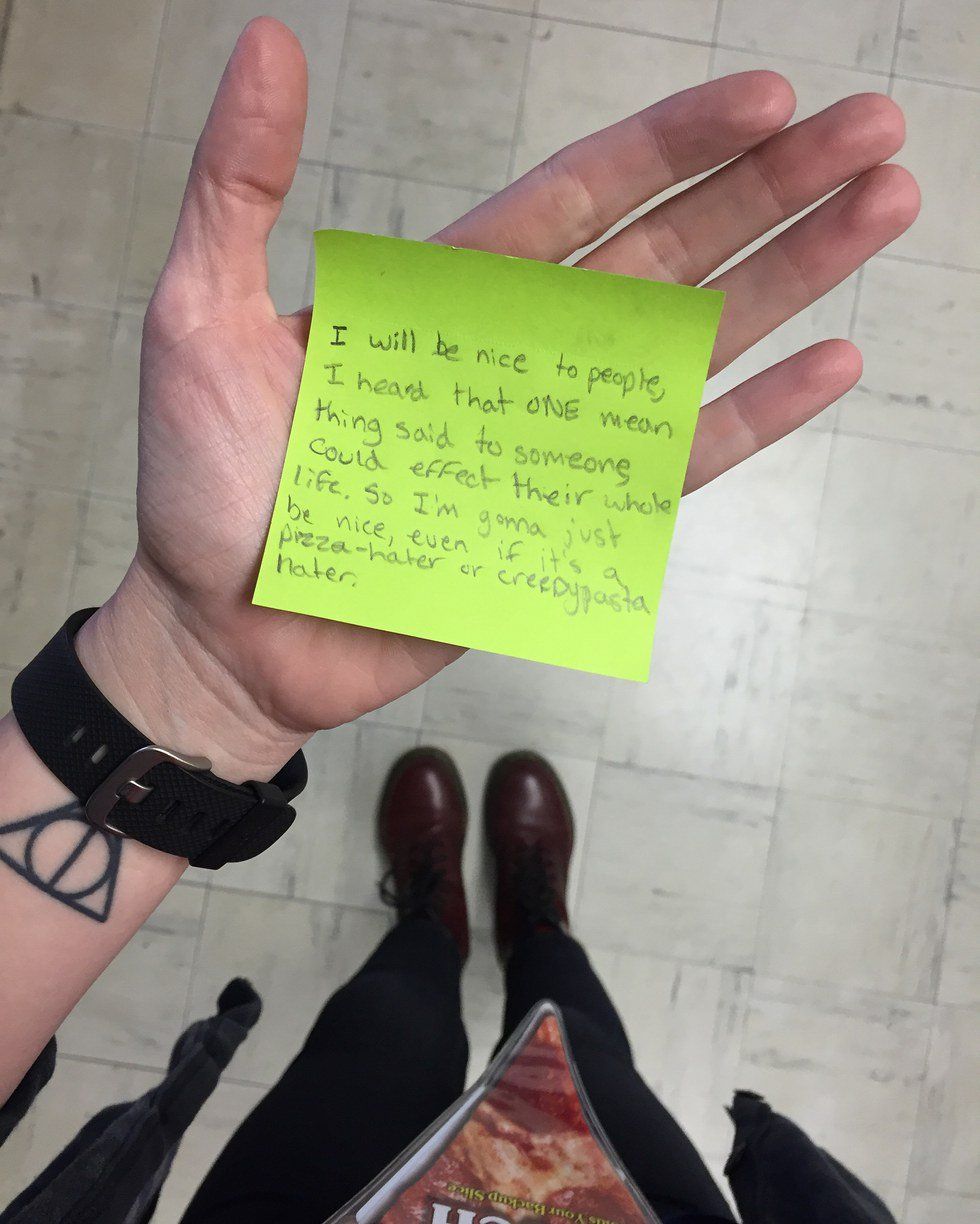 I will be nice to people,
I heard that ONE mean
thing said to someone
could effect their whole
life. So I'm gonna just
be nice, even if it's a
pizza-hater or creepypasta
hater.
Your Backup Slice